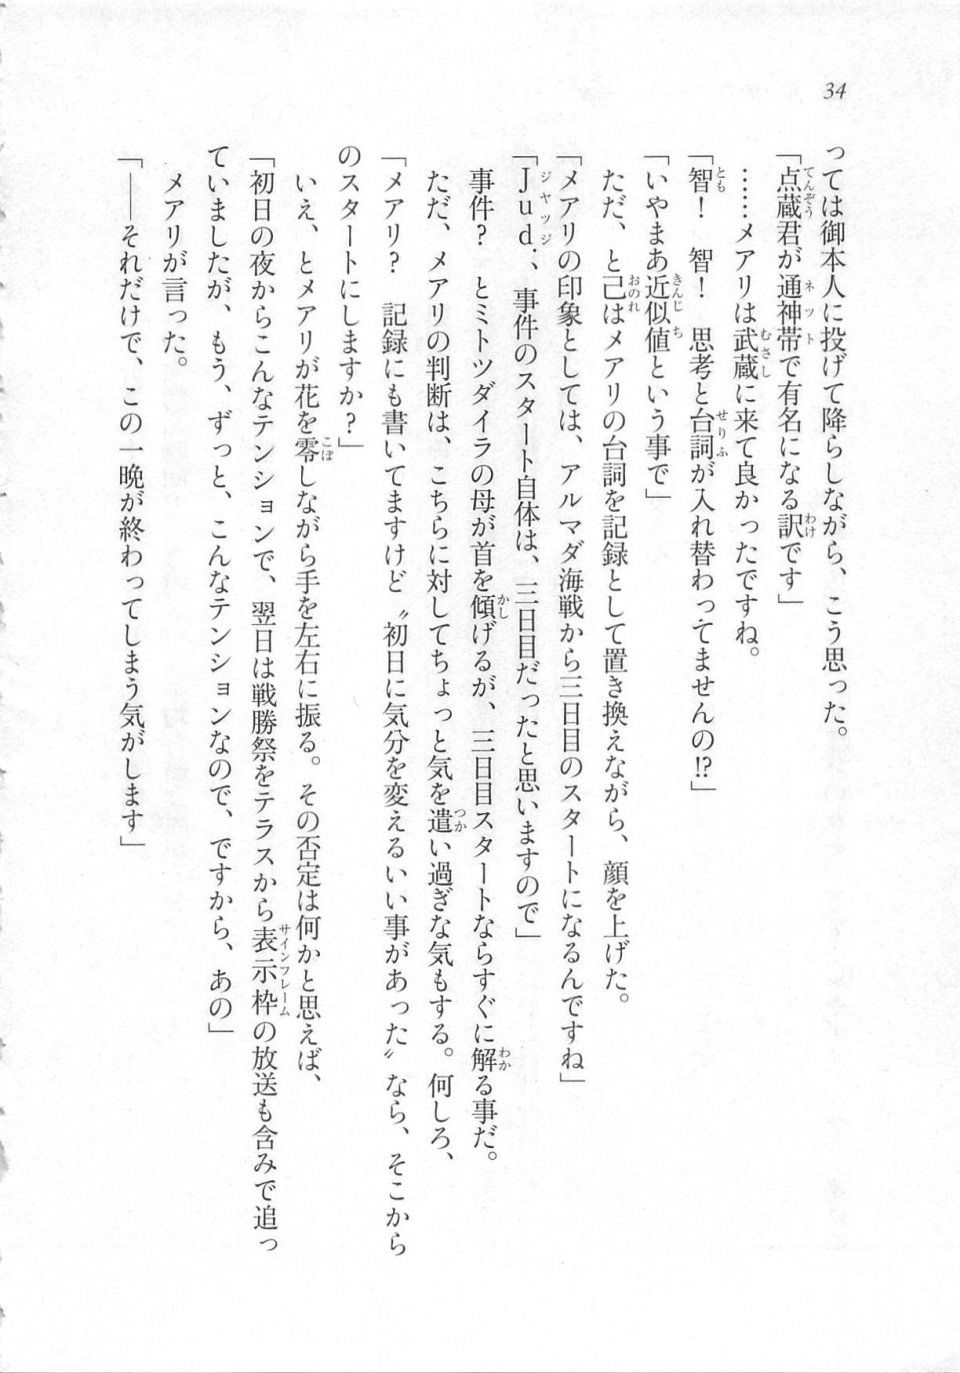 34
っては御本人に投げて降らしながら、こう思った。
「点蔵君が通神帯で有名になる訳です」
……メアリは武蔵に来て良かったですね。
「智！　智！　思考と台詞が入れ替わってませんの!?」
「いやまあ近似値という事で」
ただ、と己はメアリの台詞を記録として置き換えながら、顔を上げた。
「メアリの印象としては、アルマダ海戦から三日目のスタートになるんですね」
「Ｊｕｄ．、事件のスタート自体は、三日目だったと思いますので」
事件？　とミトツダイラの母が首を傾げるが、三日目スタートならすぐに解る事だ。
ただ、メアリの判断は、こちらに対してちょっと気を遣い過ぎな気もする。何しろ、
「メアリ？　記録にも書いてますけど〝初日に気分を変えるいい事があった〟なら、そこから
のスタートにしますか？」
いえ、とメアリが花を零しながら手を左右に振る。その否定は何かと思えば、
「初日の夜からこんなテンションで、翌日は戦勝祭をテラスから表示枠の放送も含みで追っ
ていましたが、もう、ずっと、こんなテンションなので、ですから、あの」
メアリが言った。
「――それだけで、この一晩が終わってしまう気がします」